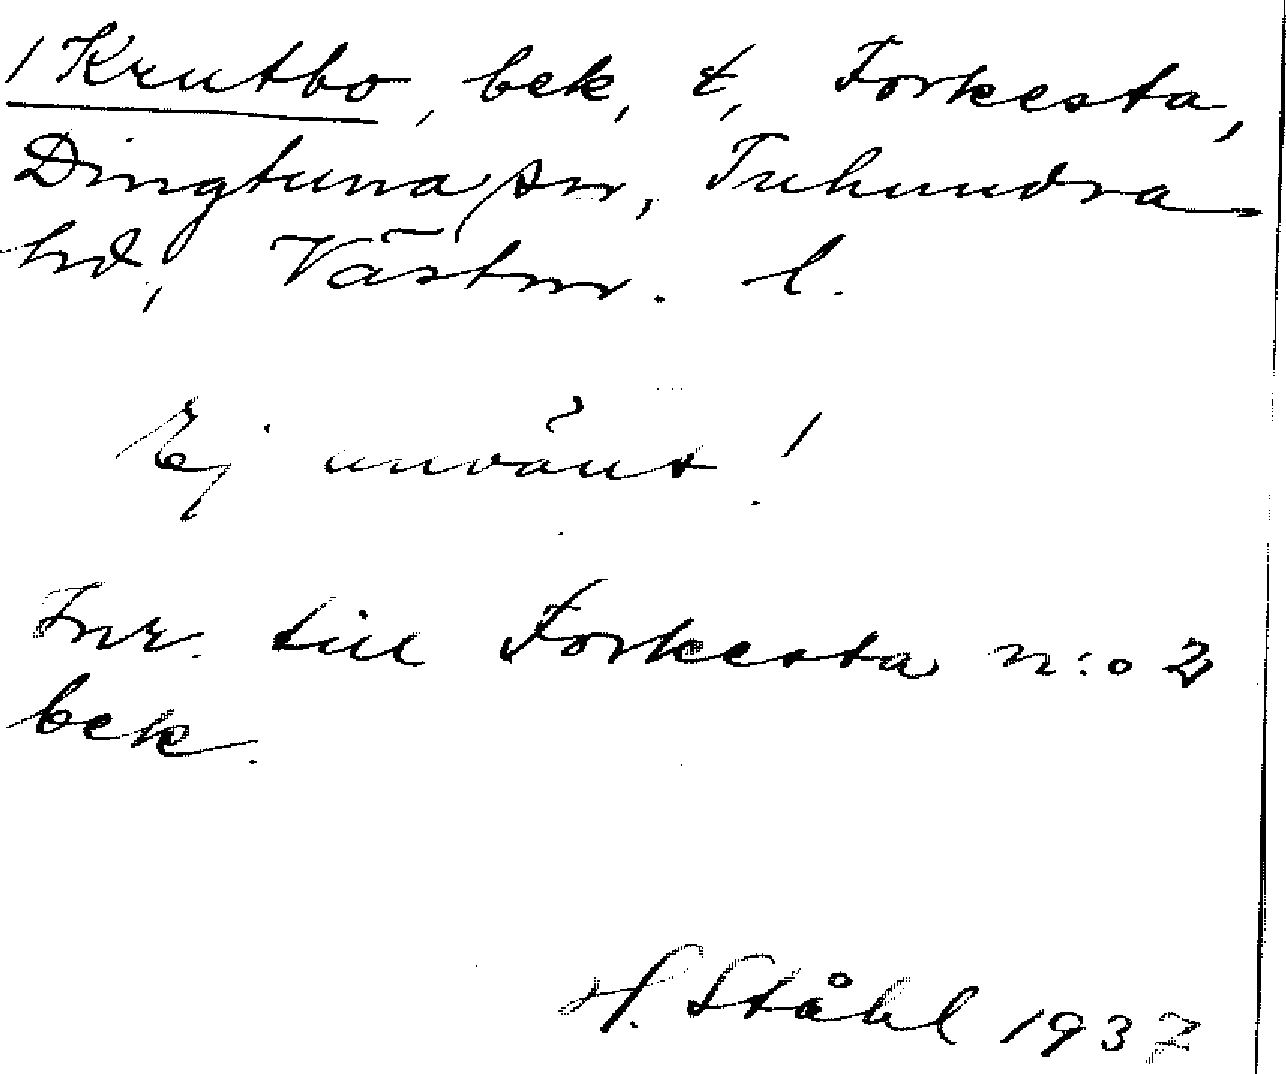 / Krutbo, bek, t, Forkesta,
Dingtuna sn, Tuhundra-
hd, Västm. l.
Ej använt!
Fnr. till Forkesta n:o 2
bek.
H. Ståhl 1937